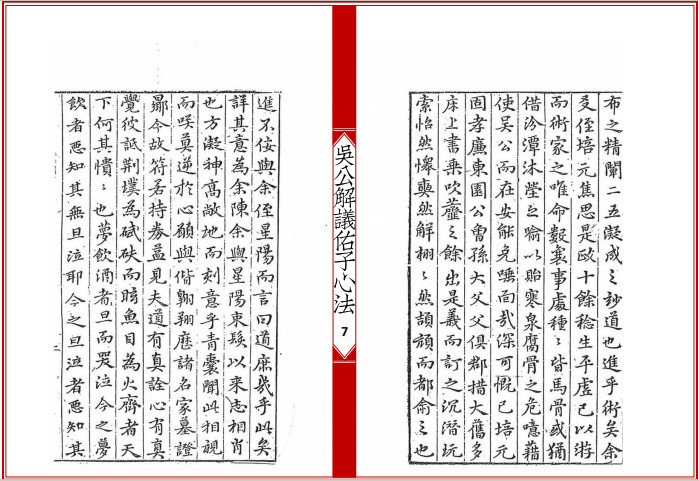 布之精闡二五凝成之妙道也進乎術矣余
侄培元焦思是歐十餘稔生平虛已以游
而術家之唯命襄事處種〻皆馬骨或猶
借汾潭沐瑩之喻以貽寒泉腐骨之危噫藉
使吳公而在安能免唾面哉深可慨已培元
固孝廉東園公曾孫大父父俱郡措大舊多
床上書乗吹藜之餘出是義而訂之沉潛玩
索怡然懌奭然解栩〻然頡頏而都俞之也
吳公解議佑子心法
7
進不佞與余侄星陽而言曰道庶幾乎此矣
詳其意為余陳余與星陽東髮以來志相肖
也方凝神高敞地而刻意乎青囊聞此相視
而唉真逆於心願與偕翱翔歷諸名家墓證
曩今故符若持券益見夫道有真詮心有真
覺彼詆荊璞為碔砆而眩魚目為火齊者天
下何其憒〻也夢飲酒者旦而哭泣今之夢
飲者惡知其無旦泣耶今之旦泣者惡知其